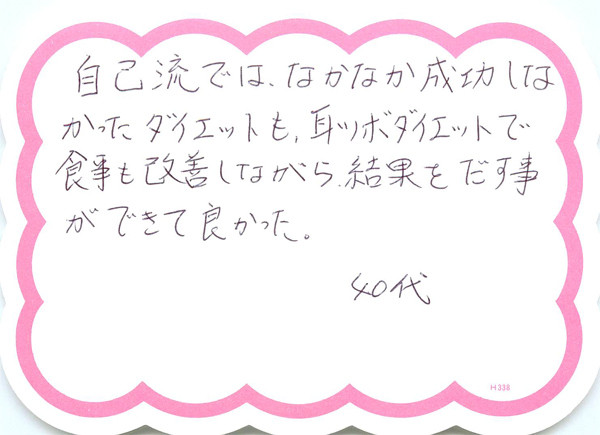 自己流では、なかなか成功しな
かったダイエットも、耳ツボダイエットで
食事も改善しながら、結果をだす事
ができて良かった。
40代
H338